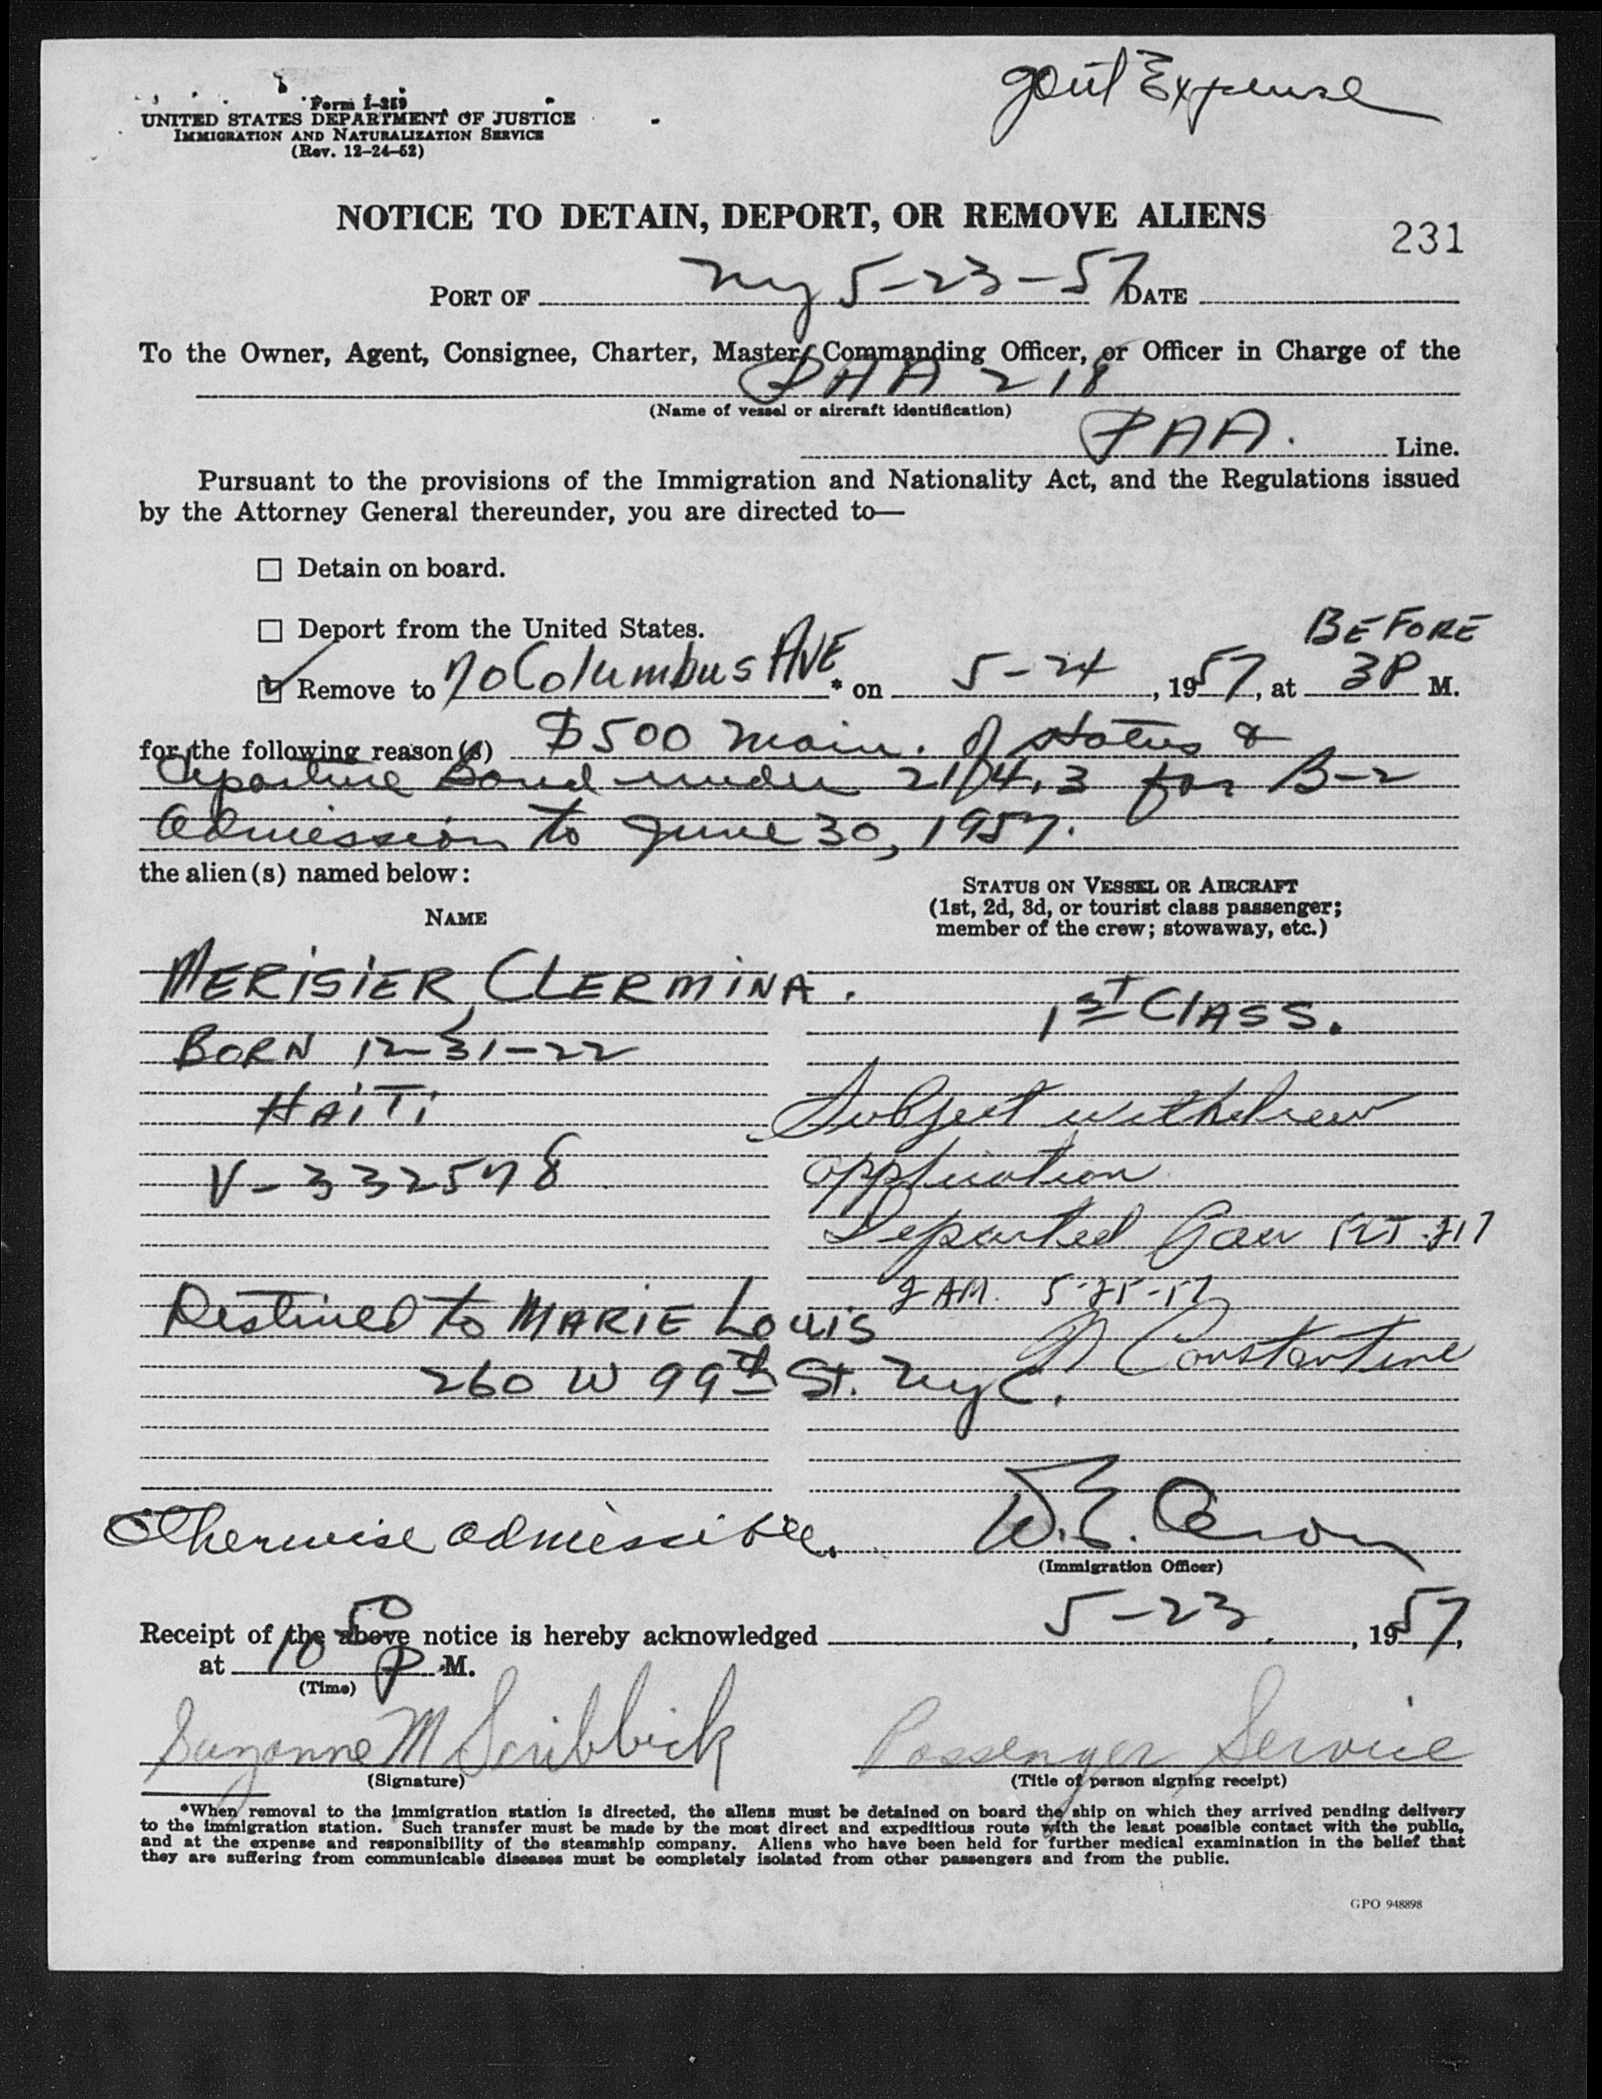 Govt Expense
Form I-259
UNITED STATES DEPARTMENT OF JUSTICE
IMMIGRATION AND NATURALIZATION SERVICE
(Rev. 12-24-52)
NOTICE TO DETAIN, DEPORT, OR REMOVE ALIENS
231
PORT OF NY 5-23-57 DATE
To the Owner, Agent, Consignee, Charter, Master, Commanding Officer, or Officer in Charge of the
PAA 218
(Name of vessel or aircraft identification)
PAA. Line.
Pursuant to the provisions of the Immigration and Nationality Act, and the Regulations issued
by the Attorney General thereunder, you are directed to—
Detain on board.
Deport from the United States.
BEFORE
Remove to 70 Columbus AVE * on 5-24, 1957, at 3 P M.
for the following reason(s) $500 Main. of status &
departure Bond under 214.3 for B-2
admission to June 30, 1957.
the alien(s) named below:
NAME
STATUS ON VESSEL OR AIRCRAFT
(1st, 2d, 3d, or tourist class passenger;
member of the crew; stowaway, etc.)
MERISIER, CLERMINA.
1ST CLASS.
BORN 12-31-22
HAITI
Subject withdrew
V-332578
application
Departed 217
2 AM. 5-25-57
Destined to MARIE LOUIS
N Constantine
260 W 99th St. NyC.
Otherwise admissible.
W.E.
(Immigration Officer)
Receipt of the above notice is hereby acknowledged 5-23, 1957,
at 10 50 P M.
(Time)
Suzanne M Scribbick
Passenger Service
(Signature)
(Title of person signing receipt)
*When removal to the immigration station is directed, the aliens must be detained on board the ship on which they arrived pending delivery
to the immigration station. Such transfer must be made by the most direct and expeditious route with the least possible contact with the public,
and at the expense and responsibility of the steamship company. Aliens who have been held for further medical examination in the belief that
they are suffering from communicable diseases must be completely isolated from other passengers and from the public.
GPO 948898